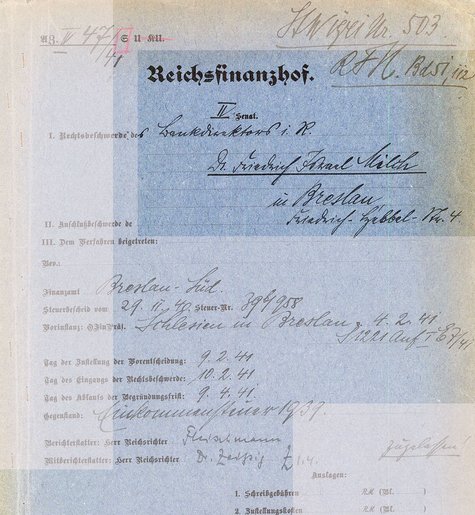 StW ... Nr. 503
A3. IV 47/41 S u KU.
RFH. Bd 51, 112
Reichsfinanzhof.
IV. Senat.
I. Rechtsbeschwerde des Bankdirektors i. R.
Dr. Friedrich Israel Milch
in Breslau,
Friedrich-Hebbel-Str. 4
II. Anschlußbeschwerde de
III. Dem Verfahren beigetreten:
Bev.:
Finanzamt Breslau-Süd.
Steuerbescheid vom 29. II. 40. Steuer-Nr. 39b/958
Vorinstanz: OFinPräs. Schlesien in Breslau 4. 2. 41
S 1221 Auf
Tag der Zustellung der Vorentscheidung: 9. 2. 41
Tag des Eingangs der Rechtsbeschwerde: 10. 2. 41
Tag des Ablaufs der Begründungsfrist: 9. 4. 41
Gegenstand: Einkommensteuer 1939.
Berichterstatter: Herr Reichsrichter Fleischmann
Mitberichterstatter: Herr Reichsrichter Dr. 1. 4.
zugelassen
Auslagen:
1. Schreibgebühren RM (Bl. )
2. Zustellungskosten RM (Bl.